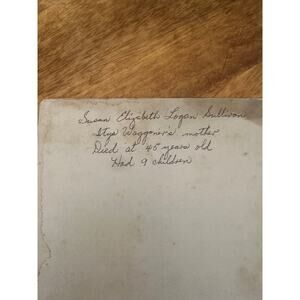 Susan Elizabeth Logan Sullivan
Waggoner's mother
Died at 45 years old
Had 9 children